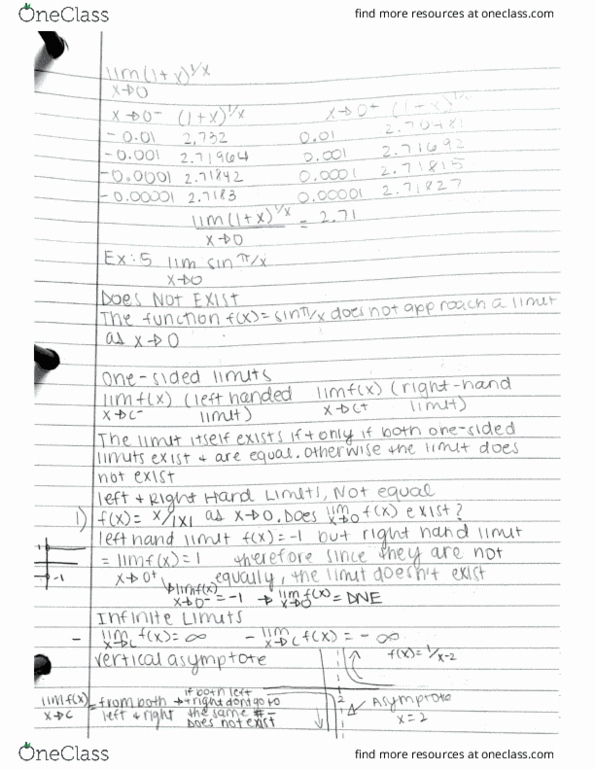 OneClass
find more resources at oneclass.com
lim (1+x)^1/x
x→0
x→0⁻ (1+x)^1/x x→0⁺ (1+x)^1/x
-0.01 2.732 0.01 2.70481
-0.001 2.71964 0.001 2.71692
-0.0001 2.71842 0.0001 2.71815
-0.00001 2.7183 0.00001 2.71827
lim (1+x)^1/x = 2.71
x→0
Ex:5 lim sin π/x
x→0
Does Not Exist
The function f(x)=sin π/x does not approach a limit
as x→0
One-sided limits
lim f(x) (left handed lim f(x) (right-hand
x→c⁻ limit) x→c+ limit)
The limit itself exists if + only if both one-sided
limits exist + are equal. Otherwise the limit does
not exist
left + Right Hand Limits, Not equal
1) f(x)= x/|x| as x→0. Does lim x→0 f(x) exist?
left hand limit f(x)=-1 but right hand limit
= lim f(x)=1 therefore since they are not
x→0⁺ equally, the limit doesn't exist
lim f(x) x→0⁻ = -1 → lim x→0 f(x) = DNE
1
-1
Infinite Limits
- lim x→c f(x)=∞ - lim x→c f(x) = -∞
vertical asymptote f(x)=1/x-2
lim f(x) = from both → if both left + right don't go to
x→c left + right the same # - Does not exist
2
Asymptote
x=2
OneClass
find more resources at oneclass.com